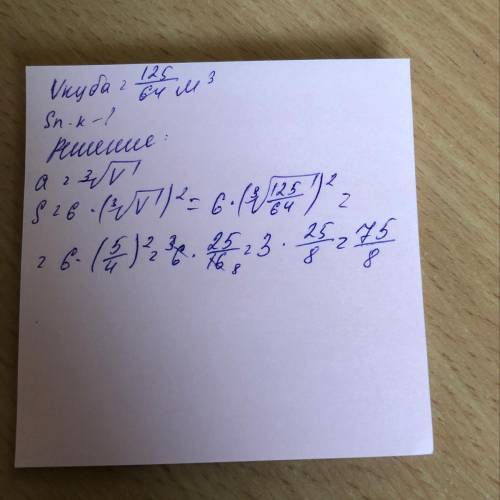 Vкуба = 125/64 м³
Sп.к - ?
Решение:
a = ³√V
S = 6 · (³√V)² = 6 · (³√125/64)² =
= 6 · (5/4)² = 6 · 25/16 = 3 · 25/8 = 75/8